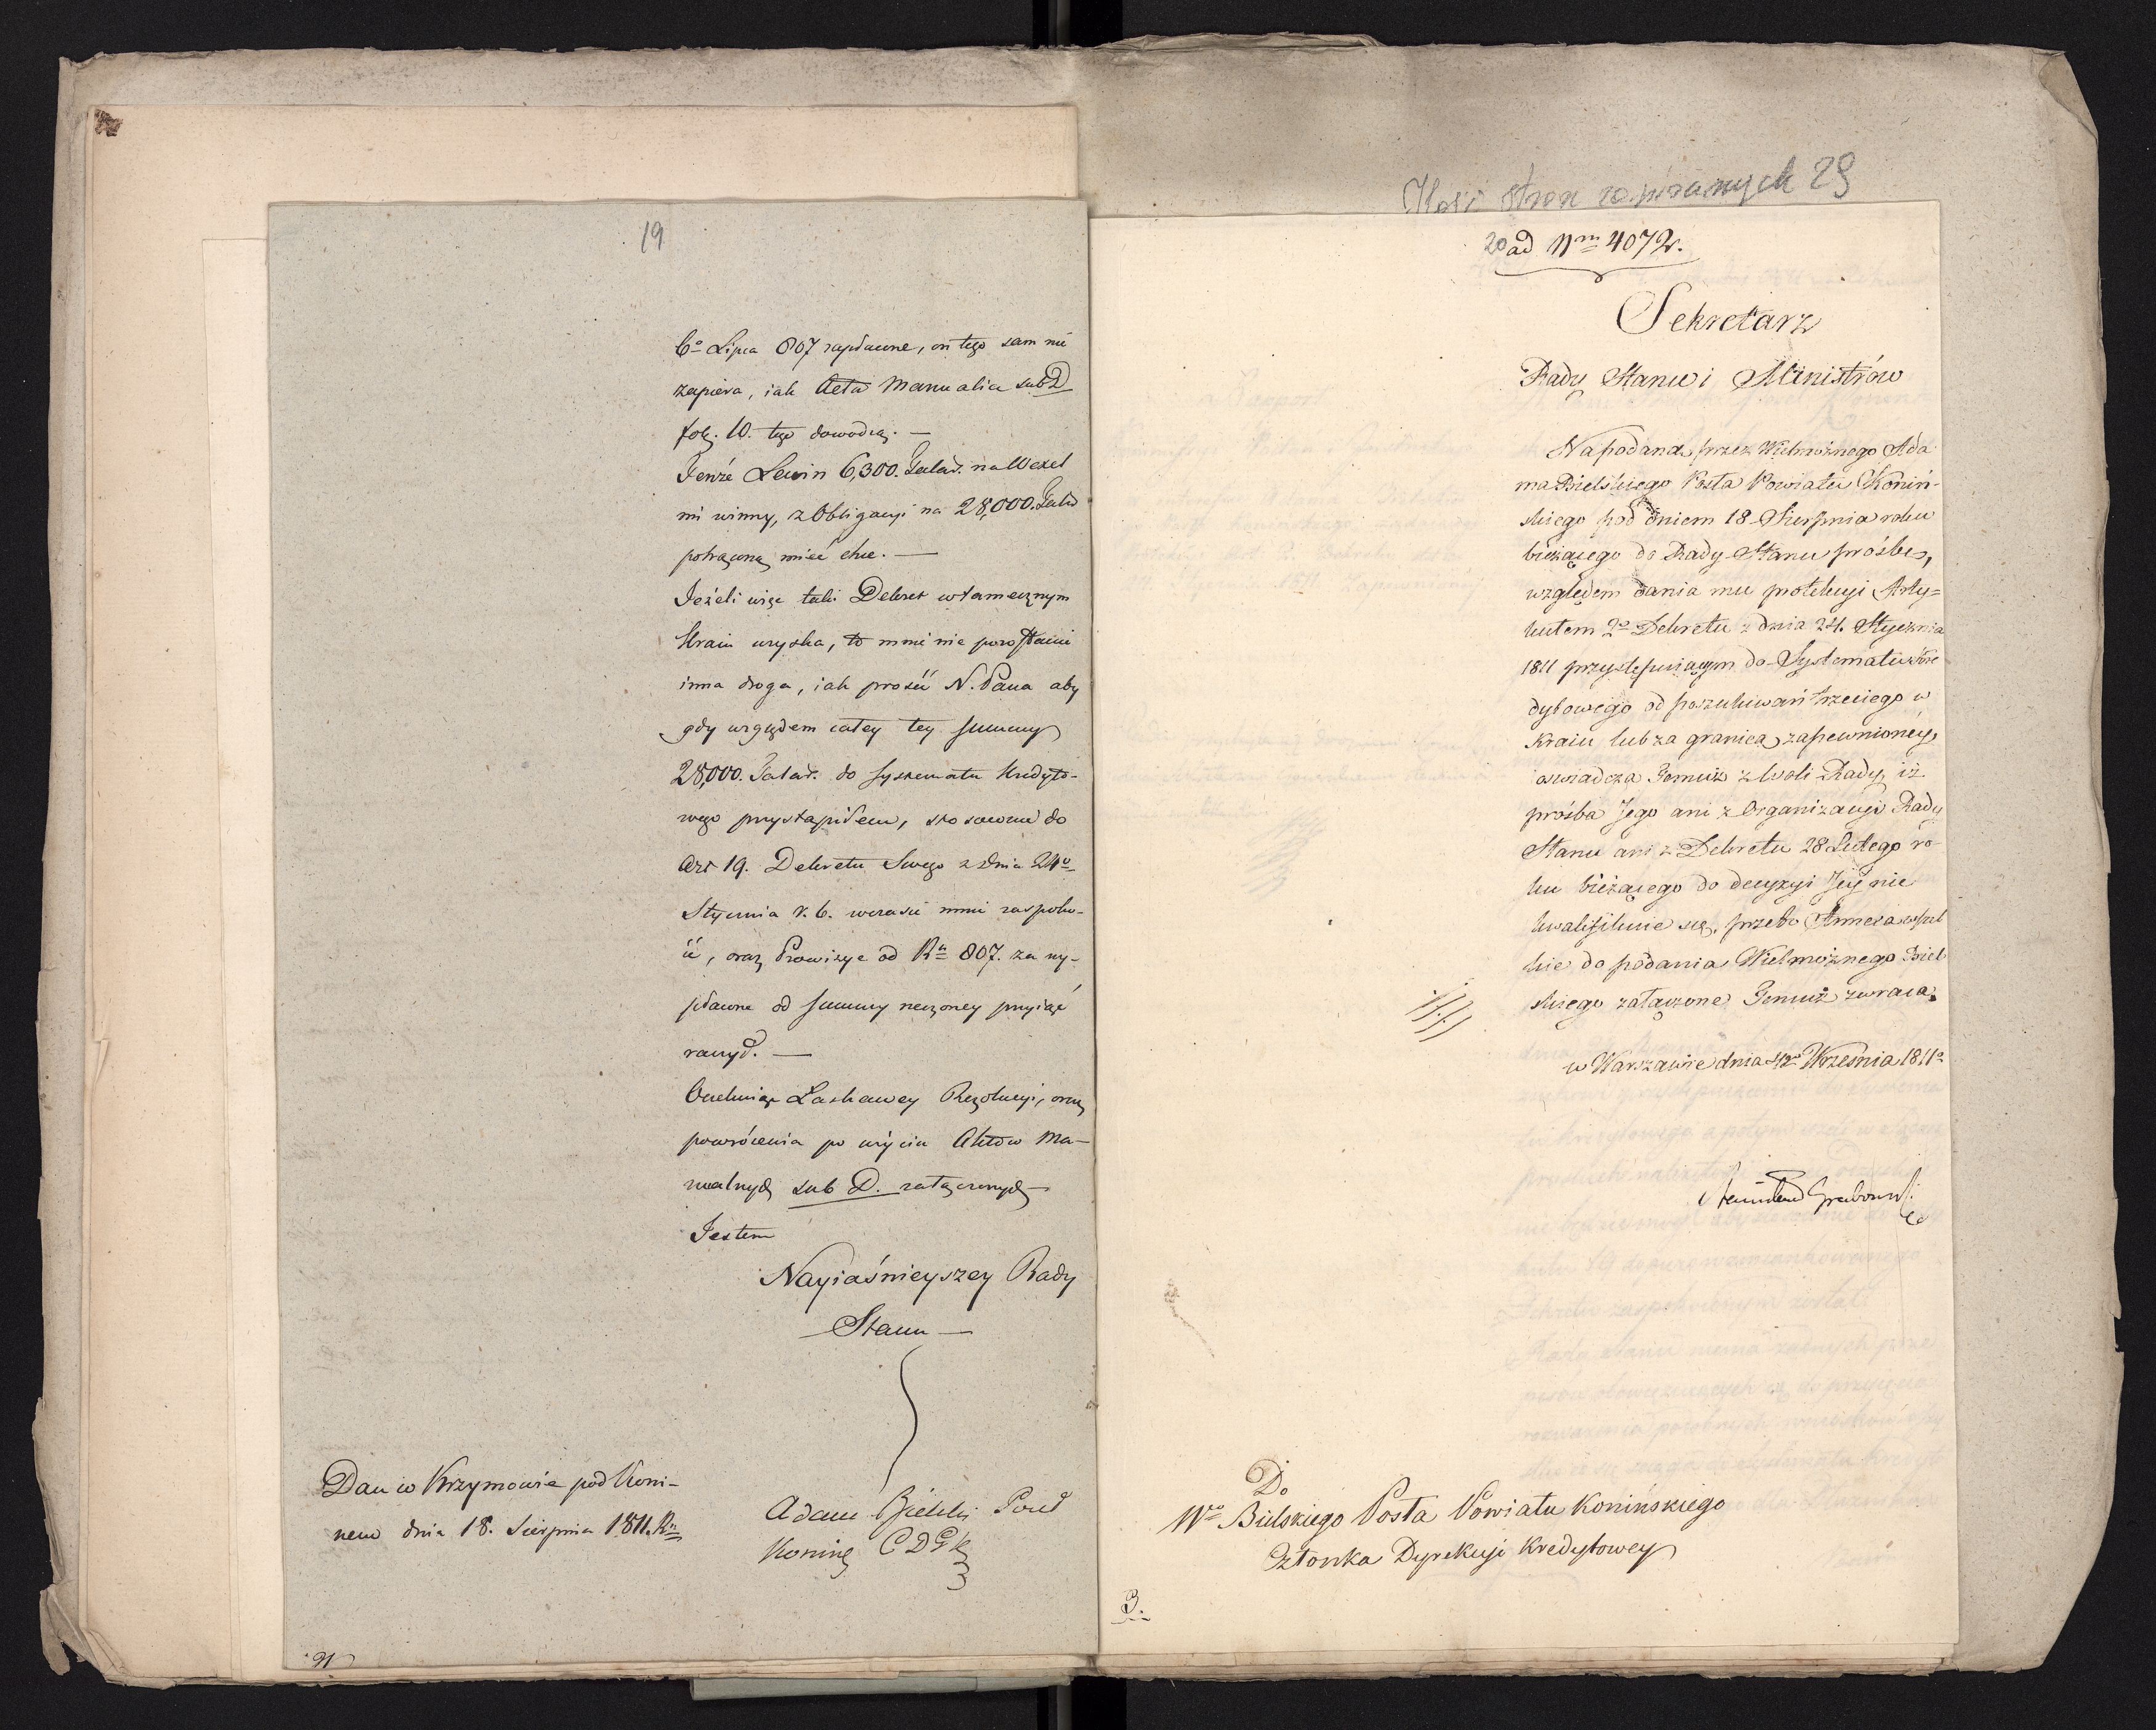 19
6º Lipca 807 zapłacone, on tego sam nie
zapiera, iak Acta Manualia sub D
fol. 10. tego dowodzą. —
Tenże Lewin 6,300. Talar. na Wexel
mi winny, z Obligacyi na 28,000. Talar
potrąconą mieć chce. —
Jeżeli więc taki Dekret w tamecznym
Kraiu uzyska, to mnie nie pozostaie
inna droga, iak prosić N. Pana aby
gdy względem całey tey summy
28,000. Talar. do systematu kredyto-
wego przystąpiłem, stosownie do
Art 19. Dekretu Swego z dnia 24º
Stycznia r. b. w czasie mnie zaspoko-
ić, oraz Prowizye od Ru 807. za wy-
płacone od summy rzeczoney przyiąć
raczył. —
Oczekuiąc Łaskawey Rezolucyi, oraz
powrócenia po użyciu Aktów Ma-
nualnych sub D. załączonych —
Jestem
Nayiaśnieyszey Rady
Stanu —
Dan w Krzymowie pod Koni-
nem dnia 18. Sierpnia 1811. Ru
Adam Bielski Poseł
Koniń C D P K
Ilość stron zapisanych 29
20 ad Nrm 4072.
Sekretarz
Rady Stanu i Ministrów
Na podaną przez Wielmożnego Ada
ma Bielskiego Posła Powiatu Koniń-
skiego pod dniem 18 Sierpnia roku
bieżącego do Rady Stanu prośbę,
względem dania mu protekcyi Arty=
kułem 2º Dekretu z dnia 24. Stycznia
1811 przystępuiącym do Systematu Kre
dytowego od poszukiwań trzeciego w
Kraiu lub za granicą zapewnioney,
oswiadcza Temuż z Woli Rady, iż
prośba Jego ani z Organizacyi Rady
Stanu ani z Dekretu 28 Lutego ro-
ku bieżącego do decyzyi Jey nie
kwalifikuie się, przeto Annexa wszel
kie do podania Wielmożnego Biel
skiego załączone Temuż zwraca.
w Warszawie dnia 12º Września 1811º
Stanisław Grabowski
Do
Wº Bielskiego Posła Powiatu Konińskiego
Członka Dyrekcyi Kredytowey
3.